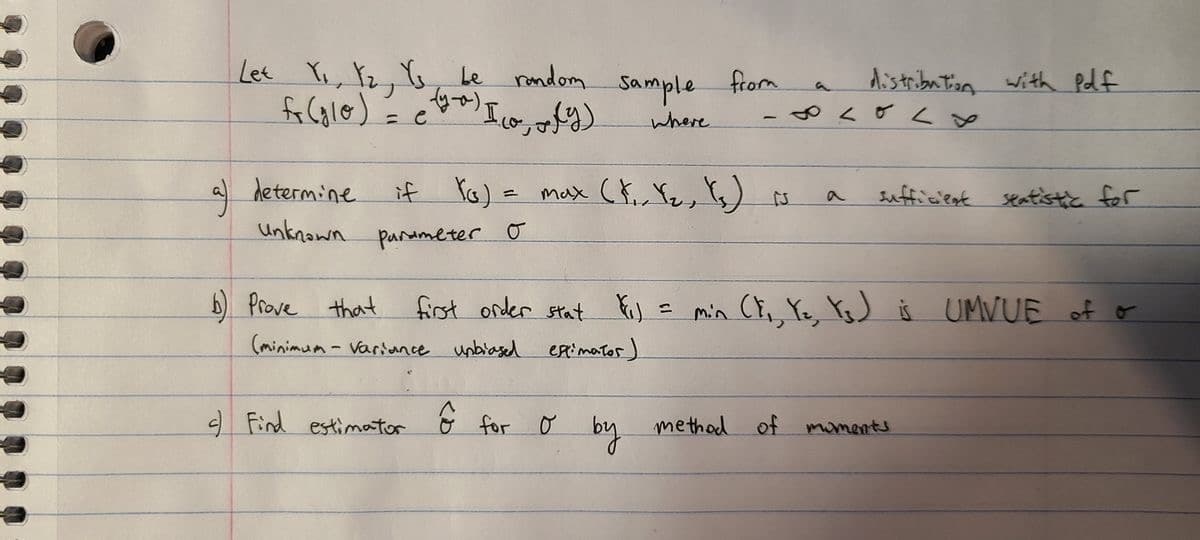 Let Y₁, Y₂, Y₃ be random sample from a distribution with pdf
f_Y(y|σ) = e^{-(y-σ)} I_{(σ, ∞)}(y) where -∞ < σ < ∞
a) determine if Y₍₃₎ = max (Y₁, Y₂, Y₃) is a sufficient statistic for
unknown parameter σ
b) Prove that first order stat Y₍₁₎ = min (Y₁, Y₂, Y₃) is UMVUE of σ
(minimum - variance unbiased estimator)
c) Find estimator σ̂ for σ by method of moments